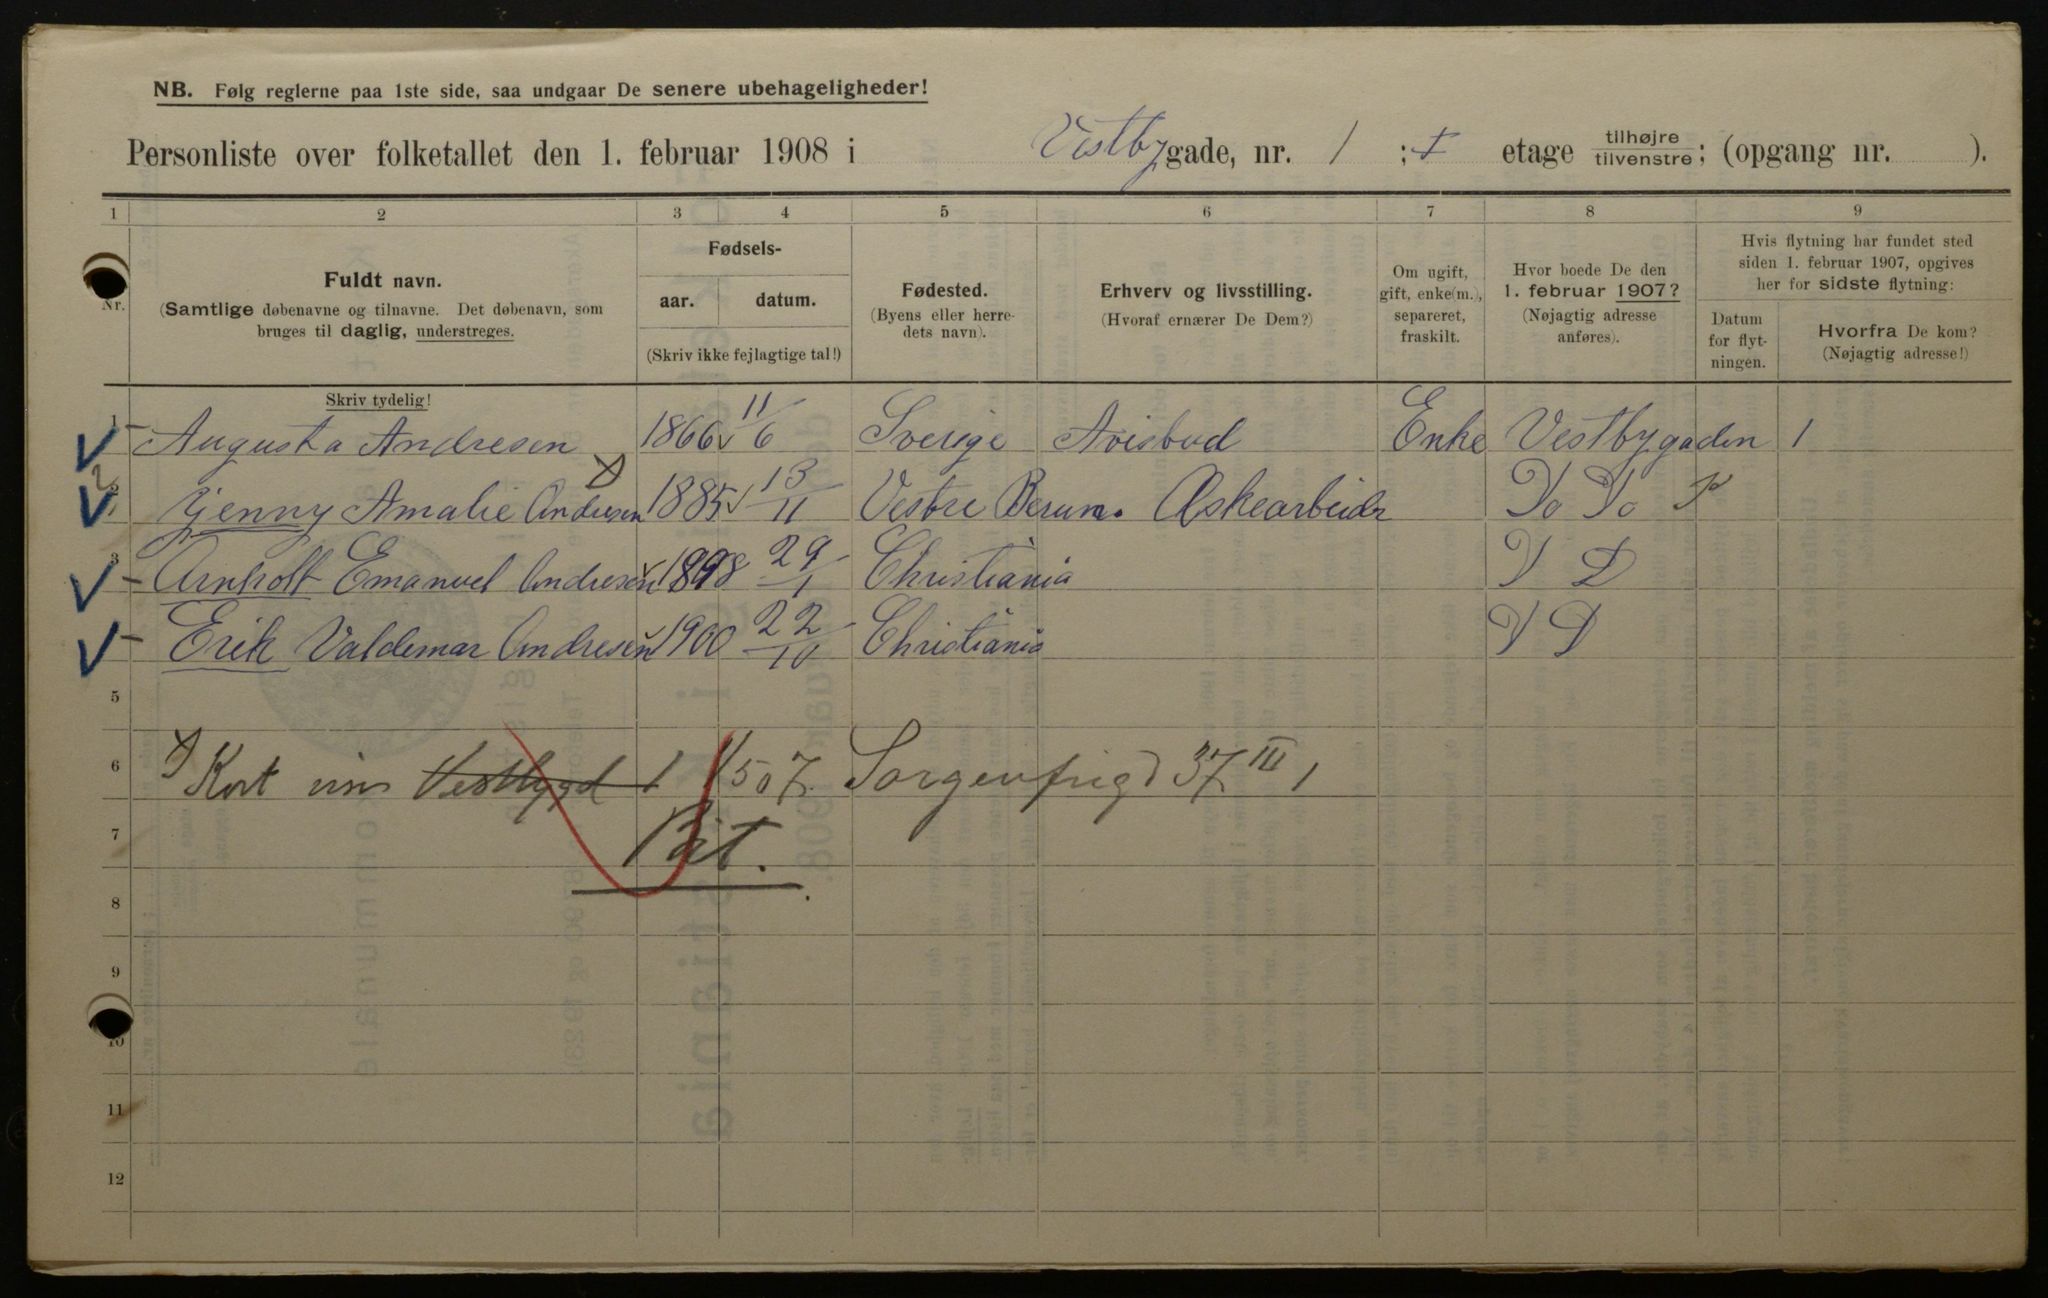 NB. Følg reglerne paa 1ste side, saa undgaar De senere ubehageligheder!
Personliste over folketallet den 1. februar 1908 i Vestbygade, nr. 1 ; I etage tilhøjre tilvenstre; (opgang nr. ).
1 2 3 4 5 6 7 8 9
Nr.
Fuldt navn.
(Samtlige døbenavne og tilnavne. Det døbenavn, som
bruges til daglig, understreges.
Skriv tydelig!
Fødsels-
aar. datum.
(Skriv ikke fejlagtige tal!)
Fødested.
(Byens eller herre-
dets navn).
Erhverv og livsstilling.
(Hvoraf ernærer De Dem?)
Om ugift,
gift, enke(m.),
separeret,
fraskilt.
Hvor boede De den
1. februar 1907?
(Nøjagtig adresse
anføres).
Hvis flytning har fundet sted
siden 1. februar 1907, opgives
her for sidste flytning:
Datum
for flyt-
ningen.
Hvorfra De kom?
(Nøjagtig adresse!)
1 Augusta Andresen 1866 11/6 Sverige Avisbud Enke Vestbygaden 1
2 Gjenny Amalie Andresen 1885 13/11 Vestre Berum. Æskearbeider Do Do
3 Arnholt Emanuel Andresen 1898 29/1 Christiania D D
Erik Valdemar Andresen 1900 22/10 Christiania D D
5
6 Kort Vestbygd 1 1/5 07. Sorgenfrigd 37 III
7
8
9
10
11
12